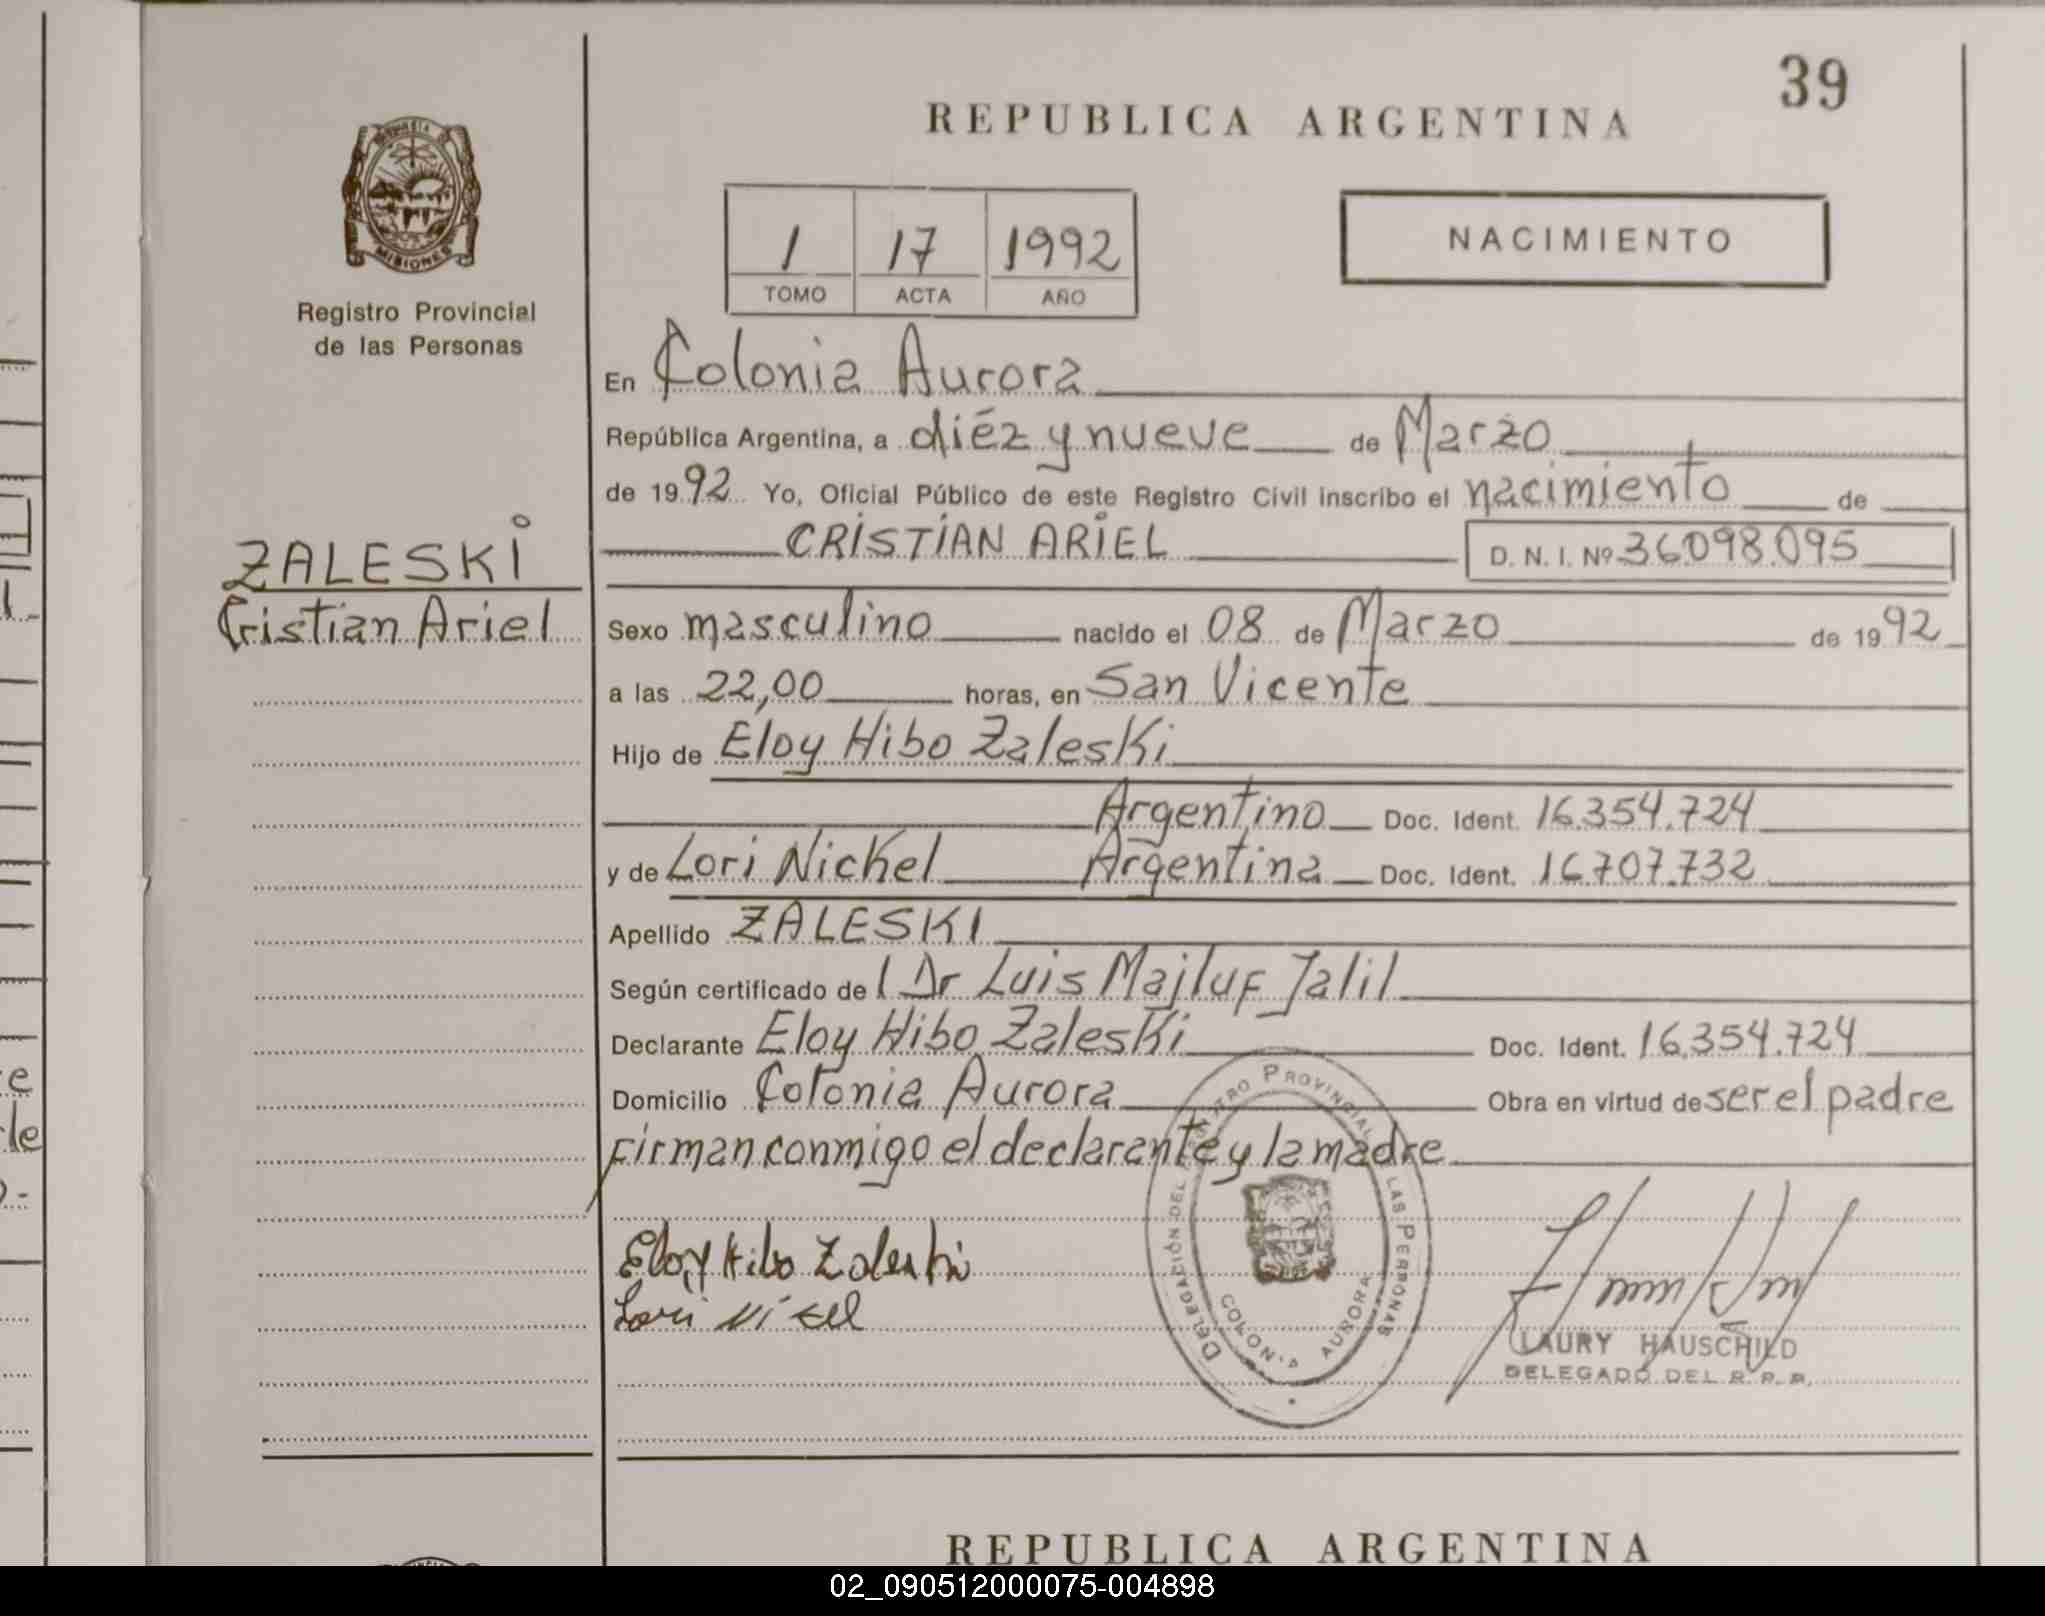 39
REPUBLICA ARGENTINA
PROVINCIA DE
MISIONES
Registro Provincial
de las Personas
1 17 1992
TOMO ACTA AÑO
NACIMIENTO
En Colonia Aurora
República Argentina, a diéz y nueve de Marzo
de 1992 Yo, Oficial Público de este Registro Civil inscribo el nacimiento de
CRISTIAN ARIEL D. N. I. Nº 36.098.095
ZALESKI
Cristian Ariel
Sexo masculino nacido el 08 de Marzo de 1992
a las 22,00 horas, en San Vicente
Hijo de Eloy Hibo Zaleski
Argentino Doc. Ident. 16.354.724
y de Lori Nickel Argentina Doc. Ident. 16.707.732
Apellido ZALESKI
Según certificado de l Dr Luis Majluf Jalil
Declarante Eloy Hibo Zaleski Doc. Ident. 16.354.724
Domicilio Colonia Aurora Obra en virtud de ser el padre
Firman conmigo el declarante y la madre
Eloy Hibo Zaleski
Lori Nikel
DELEGACIÓN DEL REGISTRO PROVINCIAL DE LAS PERSONAS
COLONIA AURORA
LAURY HAUSCHILD
DELEGADO DEL R.P.P.
REPUBLICA ARGENTINA
02_090512000075-004898